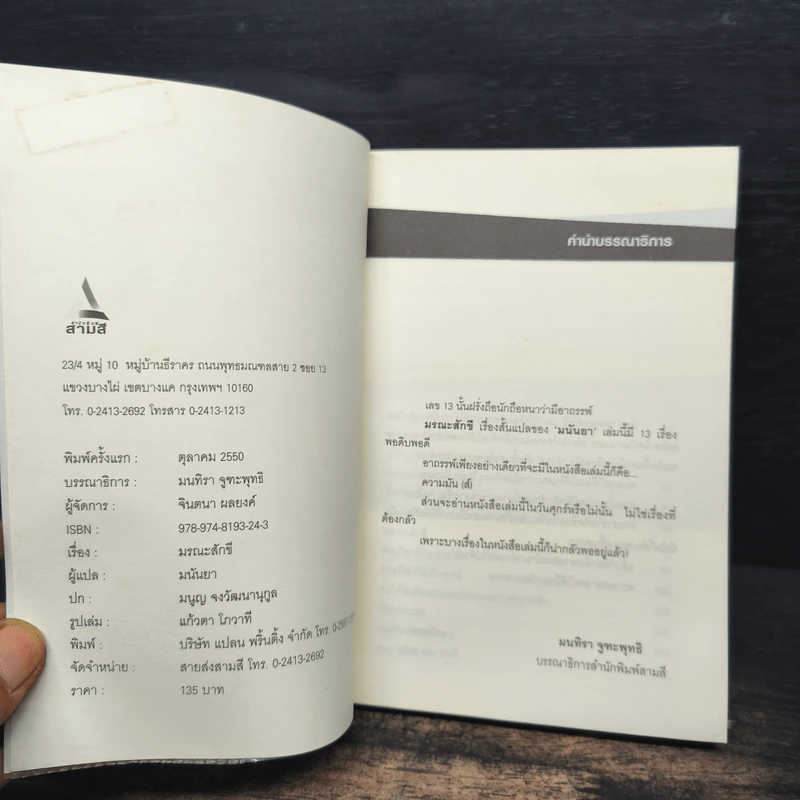 สำนักพิมพ์
สามสี
23/4 หมู่ 10 หมู่บ้านธีราคร ถนนพุทธมณฑลสาย 2 ซอย 13
แขวงบางไผ่ เขตบางแค กรุงเทพฯ 10160
โทร. 0-2413-2692 โทรสาร 0-2413-1213
พิมพ์ครั้งแรก : ตุลาคม 2550
บรรณาธิการ : มนทิรา จูฑะพุทธิ
ผู้จัดการ : จินตนา ผลยงค์
ISBN : 978-974-8193-24-3
เรื่อง : มรณะสักขี
ผู้แปล : มนันยา
ปก : มนูญ จงวัฒนานุกูล
รูปเล่ม : แก้วตา โภวาที
พิมพ์ : บริษัท แปลน พริ้นติ้ง จำกัด โทร.
จัดจำหน่าย : สายส่งสามสี โทร. 0-2413-2692
ราคา : 135 บาท
คำนำบรรณาธิการ
เลข 13 นั้นฝรั่งถือนักถือหนาว่ามีอาถรรพ์
มรณะสักขี เรื่องสั้นแปลของ 'มนันยา' เล่มนี้มี 13 เรื่อง
พอดิบพอดี
อาถรรพ์เพียงอย่างเดียวที่จะมีในหนังสือเล่มนี้ก็คือ...
ความมัน (ส์)
ส่วนจะอ่านหนังสือเล่มนี้ในวันศุกร์หรือไม่นั้น ไม่ใช่เรื่องที่
ต้องกลัว
เพราะบางเรื่องในหนังสือเล่มนี้ก็น่ากลัวพออยู่แล้ว!
มนทิรา จูฑะพุทธิ
บรรณาธิการสำนักพิมพ์สามสี